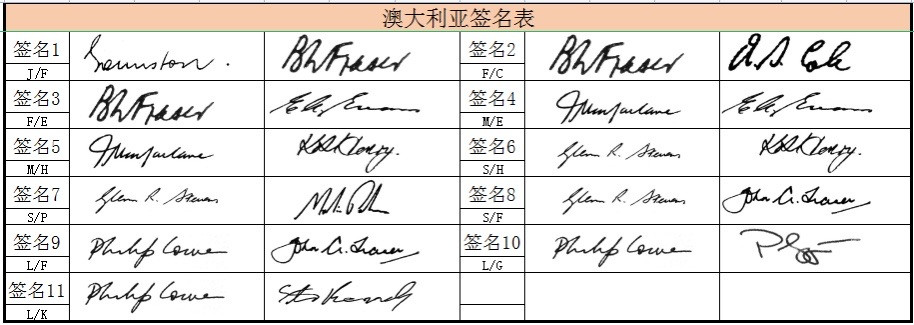 澳大利亚签名表
签名1 Johnston. BW Fraser 签名2 BW Fraser A.S. Cole
J/F F/C
签名3 BW Fraser E A Evans 签名4 I Macfarlane E A Evans
F/E M/E
签名5 I Macfarlane 签名6 Glenn R. Stevens
M/H S/H
签名7 Glenn R. Stevens 签名8 Glenn R. Stevens John A. Fraser
S/P S/F
签名9 Philip Lowe John A. Fraser 签名10 Philip Lowe
L/F L/G
签名11 Philip Lowe
L/K